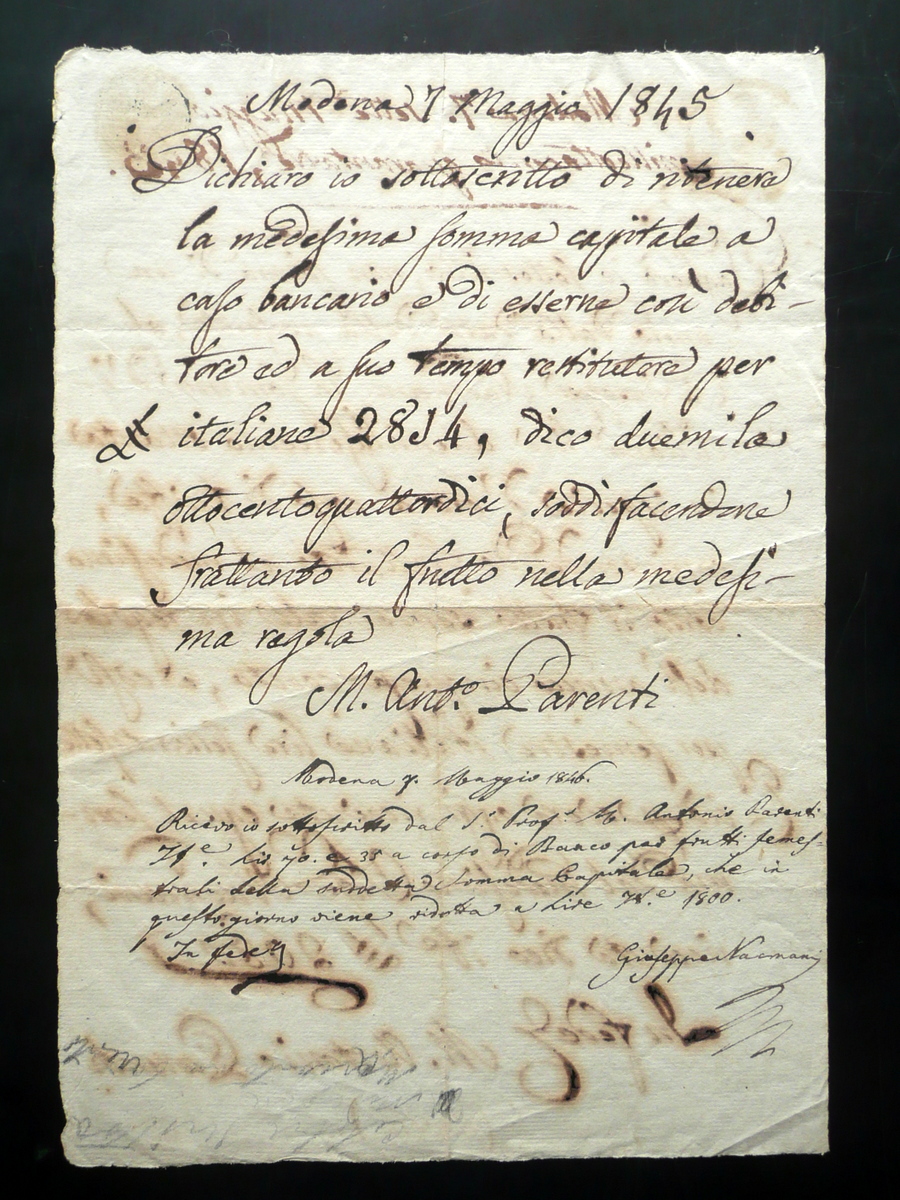 Modena 7 Maggio 1845
Dichiaro io sottoscritto di ritenere
la medesima somma capitale a
caso bancario e di esserne così debi-
tore ed a suo tempo restitutore per
italiane 2814, dico duemila
ottocentoquattordici, soddisfacendone
frattanto il frutto nella medesi-
ma regola
M. Ant.o Parenti
Modena 7. Maggio 1846.
Ricevo io sottoscritto dal S.r Prof.r M. Antonio Parenti
It.e Lire 70. e 35 a corso di Banco per frutti semes-
trali della suddetta Somma Capitale, che in
questo giorno viene ridotta a Lire It.e 1800.
In fede
Giuseppe